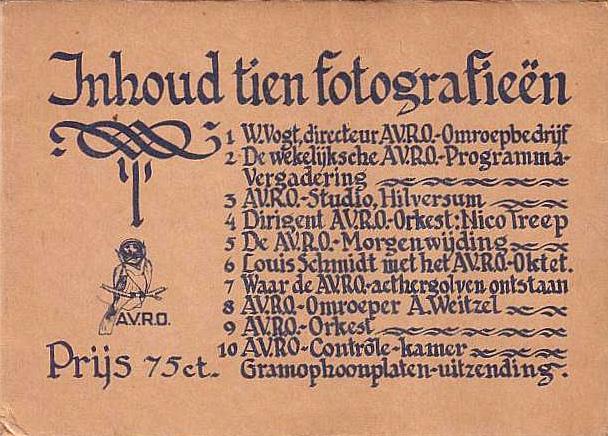 Inhoud tien fotografieën
1 W. Vogt, directeur A.V.R.O.-Omroepbedrijf
2 De wekelijksche A.V.R.O.-Programma-
Vergadering
3 A.V.R.O.-Studio, Hilversum
4 Dirigent A.V.R.O.-Orkest: Nico Treep
5 De A.V.R.O.-Morgenwijding
6 Louis Schmidt met het A.V.R.O.-Oktet.
7 Waar de A.V.R.O.-aethergolven ontstaan
8 A.V.R.O.-Omroeper A. Weitzel
9 A.V.R.O.-Orkest
10 A.V.R.O-Contrôle-kamer
Gramophoonplaten-uitzending.
A.V.R.O.
Prijs 75 ct.